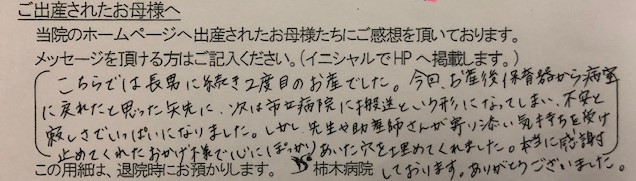 ご出産されたお母様へ
当院のホームページへ出産されたお母様たちにご感想を頂いております。
メッセージを頂ける方はご記入ください。(イニシャルでHPへ掲載します。)
こちらでは長男に続き2度目のお産でした。今回、お産後保育器から病室
に戻れたと思った矢先に、次は市立病院に搬送という形になってしまい、不安と
寂しさでいっぱいになりました。しかし、先生や助産師さんが寄り添い気持ちを受け
止めてくれたおかげ様で心にぽっかりあいた穴を埋めてくれました。本当に感謝
しております。ありがとうございました。
この用紙は、退院時にお預かりします。 柿木病院